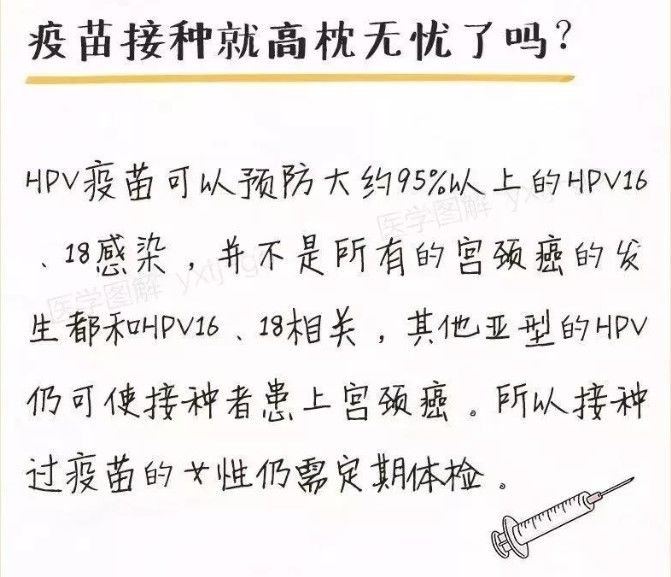 疫苗接种就高枕无忧了吗？
HPV疫苗可以预防大约95%以上的HPV16
、18感染，并不是所有的宫颈癌的发
生都和HPV16、18相关，其他亚型的HPV
仍可使接种者患上宫颈癌。所以接种
过疫苗的女性仍需定期体检。
医学图解
医学图解